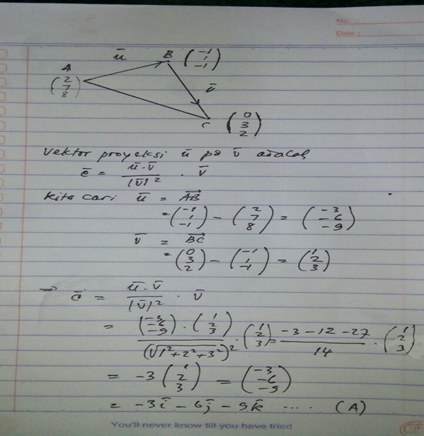 No.
Date:
ū
B (-1 1 -1)
A
(2 7 8)
v̄
C (0 3 2)
Vektor proyeksi ū pd v̄ adalah
c̄ = ū.v̄ / |v̄|² . v̄
Kita cari ū = AB
= (-1 1 -1) - (2 7 8) = (-3 -6 -9)
v̄ = BC
= (0 3 2) - (-1 1 -1) = (1 2 3)
⇒ c̄ = ū.v̄ / |v̄|² . v̄
= (-3 -6 -9) . (1 2 3) / (√1²+2²+3²)² . (1 2 3) = -3-12-27 / 14 . (1 2 3)
= -3 (1 2 3) = (-3 -6 -9)
= -3ī - 6j̄ - 9k̄ .... (A)
You'll never know till you have tried